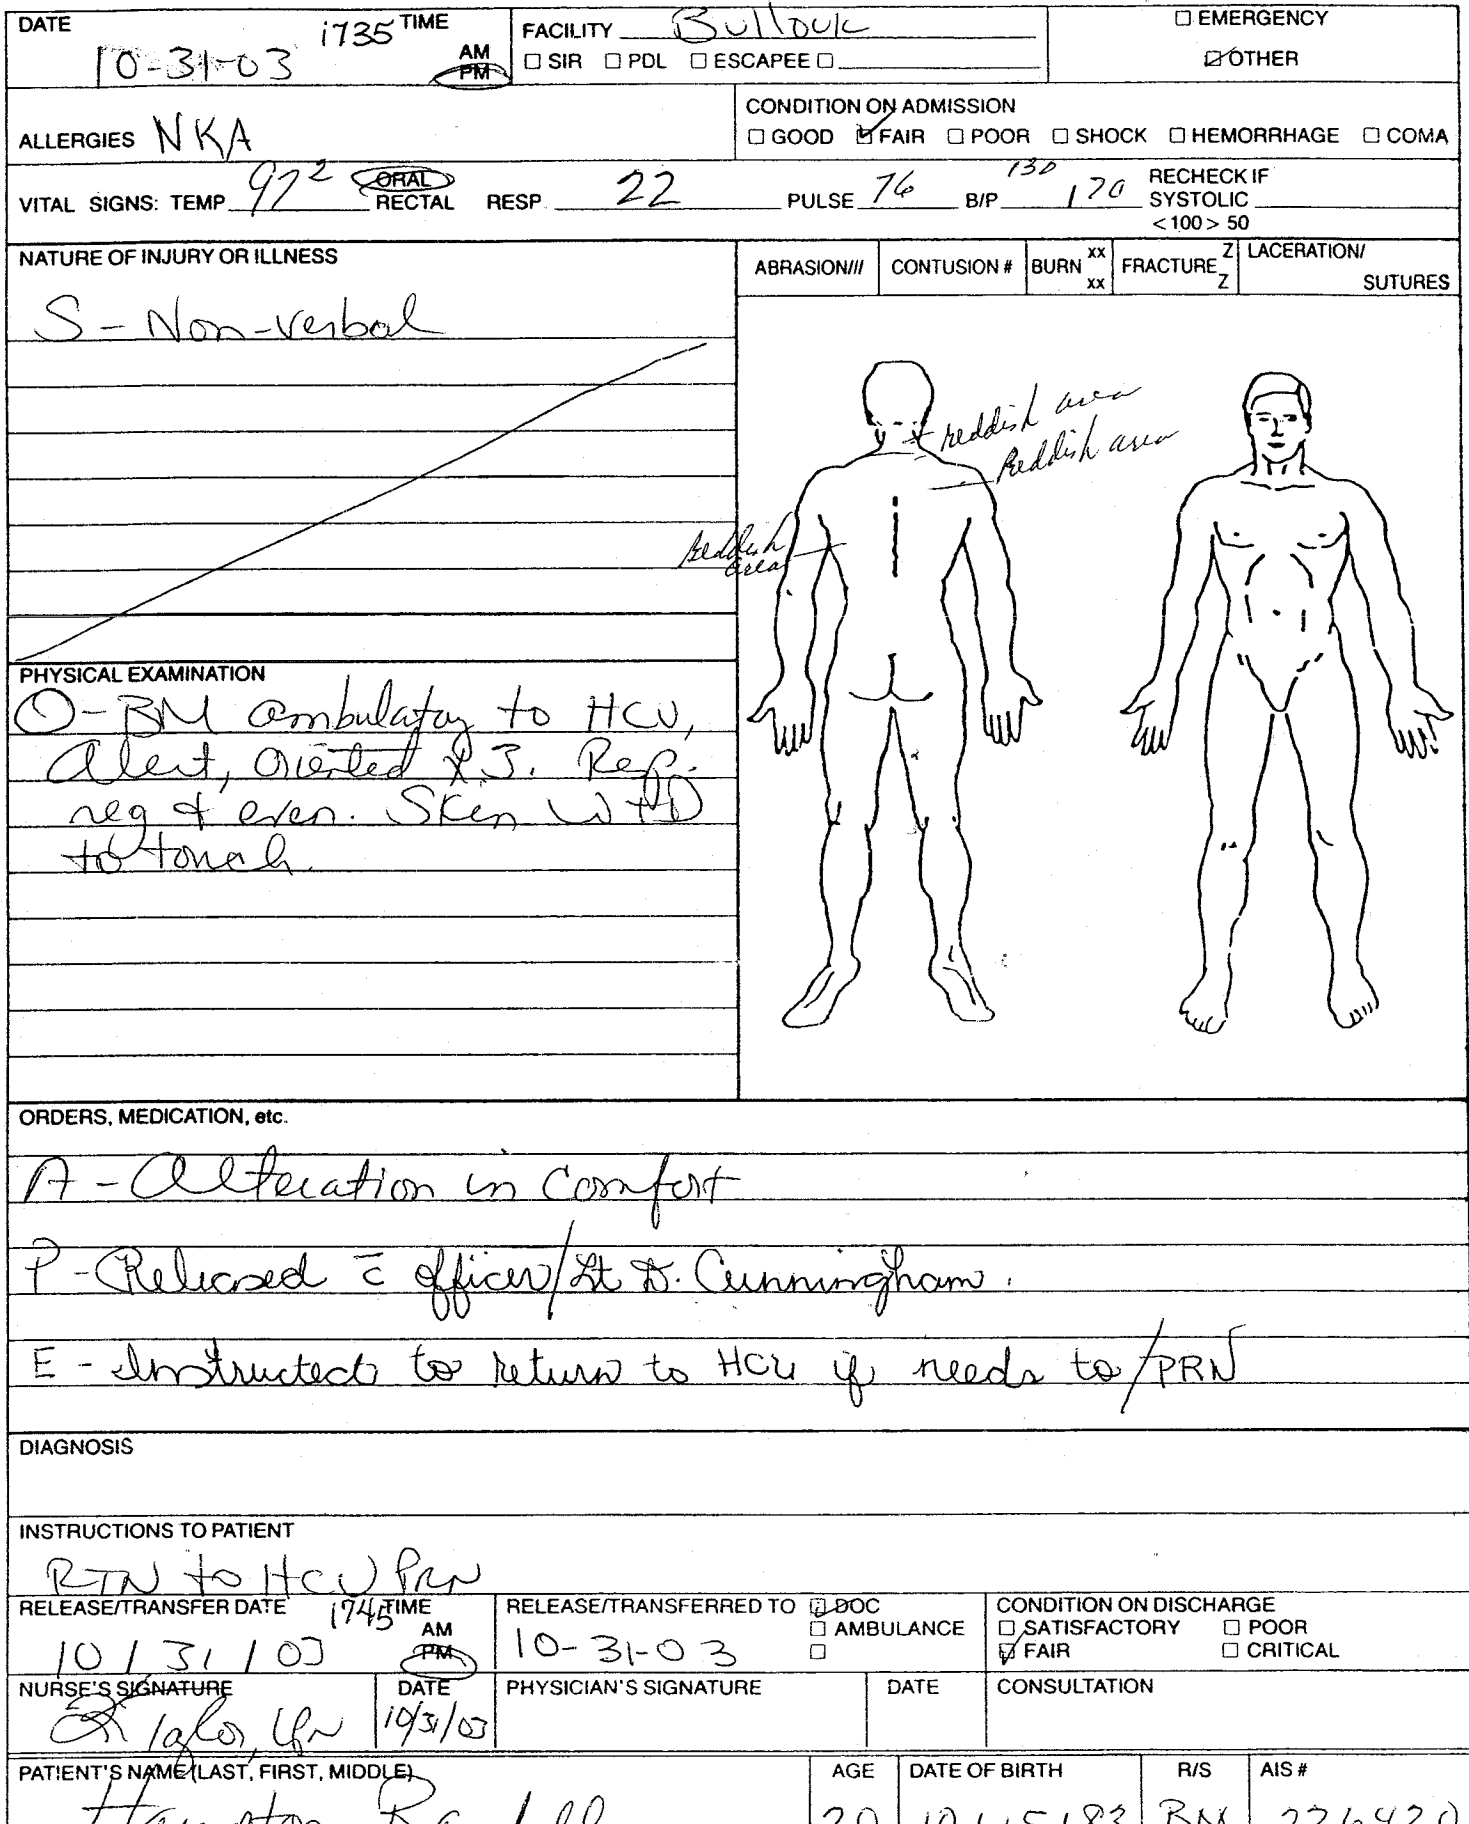 DATE 10-31-03 1735 TIME AM PM
FACILITY Bullock
□ SIR □ PDL □ ESCAPEE □
□ EMERGENCY
☑ OTHER
ALLERGIES NKA
CONDITION ON ADMISSION
□ GOOD ☑ FAIR □ POOR □ SHOCK □ HEMORRHAGE □ COMA
VITAL SIGNS: TEMP 97² ORAL RECTAL RESP 22 PULSE 76 B/P 130 / 70 RECHECK IF SYSTOLIC <100 > 50
NATURE OF INJURY OR ILLNESS
S - Non-verbal
ABRASION/// CONTUSION # BURN xx xx FRACTURE Z Z LACERATION/ SUTURES
reddish area
Reddish area
Reddish area
PHYSICAL EXAMINATION
O - BM ambulatory to HCU,
Alert, oriented x3. Resp.
reg & even. Skin W+D
to touch.
ORDERS, MEDICATION, etc.
A - Alteration in Comfort
P - Released c̄ officer/Lt D. Cunningham.
E - Instructed to return to HCU if needs to/PRN
DIAGNOSIS
INSTRUCTIONS TO PATIENT
RTN to HCU PRN
RELEASE/TRANSFER DATE 10/31/03 1745 TIME AM PM
RELEASE/TRANSFERRED TO ☑ DOC
□ AMBULANCE
10-31-03 □
CONDITION ON DISCHARGE
□ SATISFACTORY □ POOR
☑ FAIR □ CRITICAL
NURSE'S SIGNATURE DATE PHYSICIAN'S SIGNATURE DATE CONSULTATION
Taylor, LPN 10/31/03
PATIENT'S NAME (LAST, FIRST, MIDDLE) AGE DATE OF BIRTH R/S AIS #
20 10/15/83 BM 226420